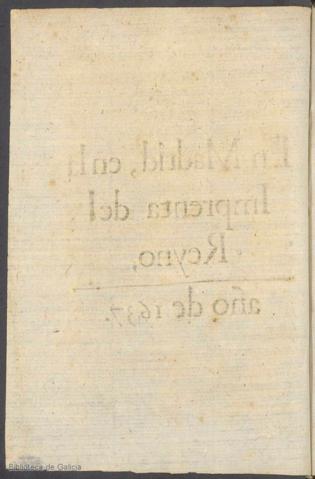 En Madrid, en la
Imprenta del
Reyno,
año de 1637.
Biblioteca de Galicia